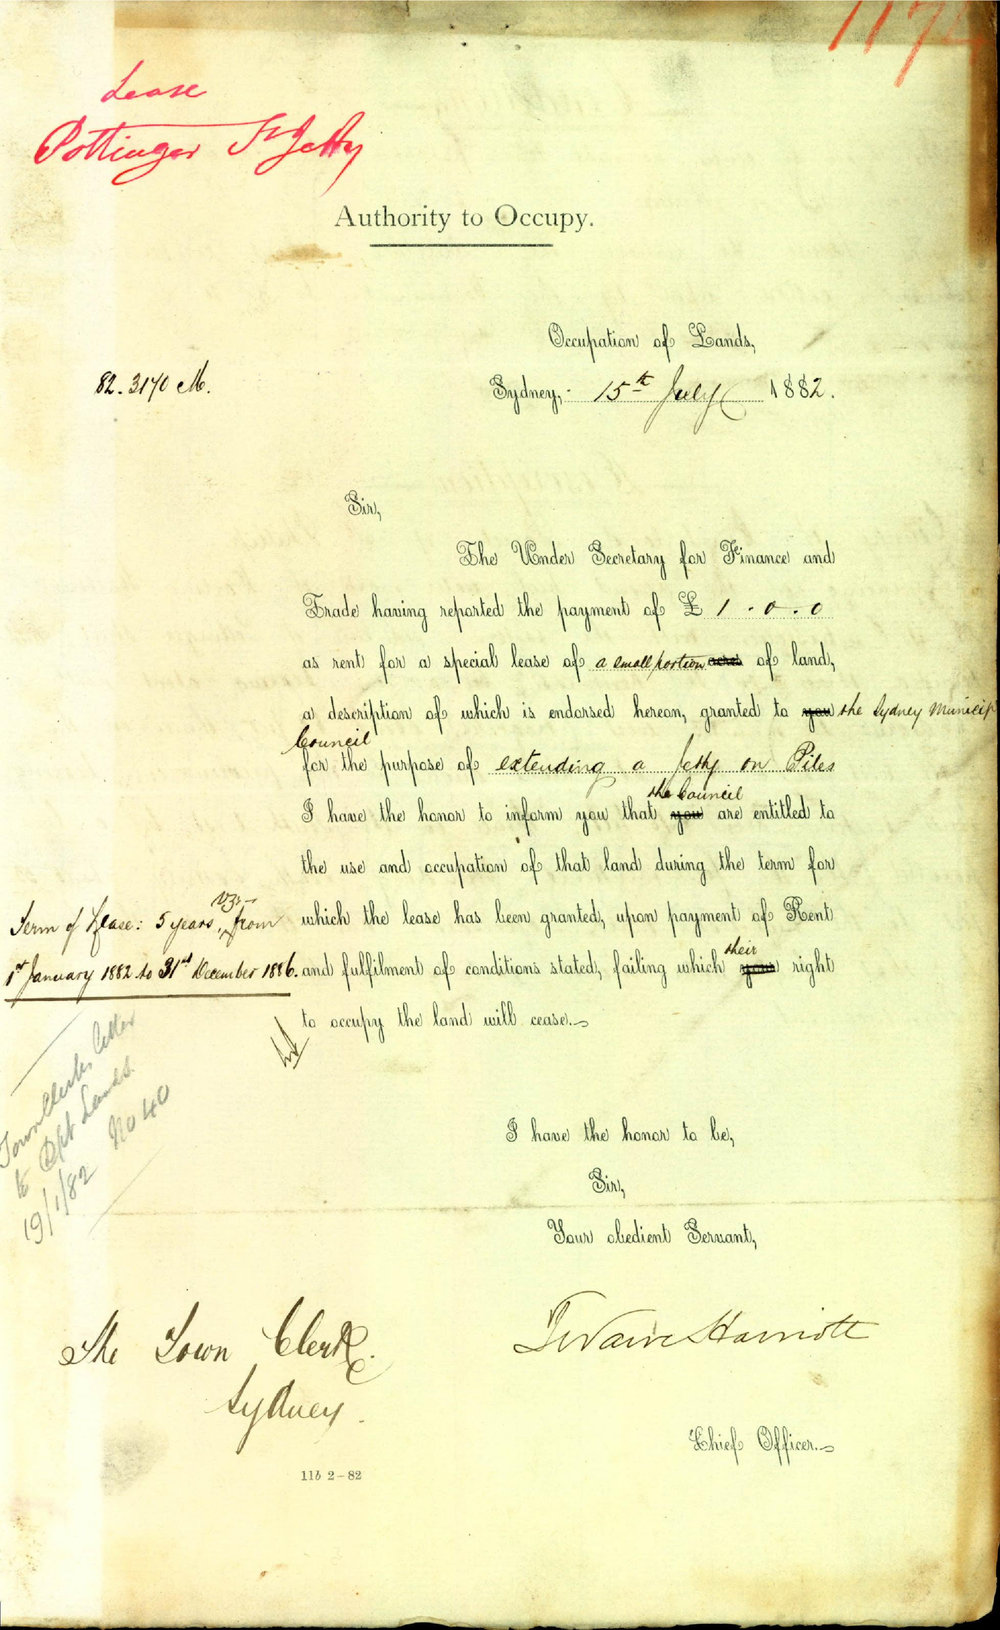 117
Lease
Pottinger St Jetty
Authority to Occupy.
Occupation of Lands,
82. 3170 M.
Sydney, 15th July 1882.
Sir,
The Under Secretary for Finance and
Trade having reported the payment of £ 1 . 0 . 0
as rent for a special lease of a small portion acres of land,
a description of which is endorsed hereon, granted to you the Sydney Municip
Council
for the purpose of extending a Jetty on Piles
the Council
I have the honor to inform you that you are entitled to
the use and occupation of that land during the term for
which the lease has been granted, upon payment of Rent
their
and fulfilment of conditions stated, failing which your right
to occupy the land will cease.
viz-
Term of Lease: 5 years, from
1st January 1882 to 31st December 1886.
Town Clerks letter
to Dpt Lands
19/1/82 No 40
I have the honor to be,
Sir,
Your obedient Servant,
Harriott
The Town Clerk.
Sydney.
Chief Officer.
11b 2-82